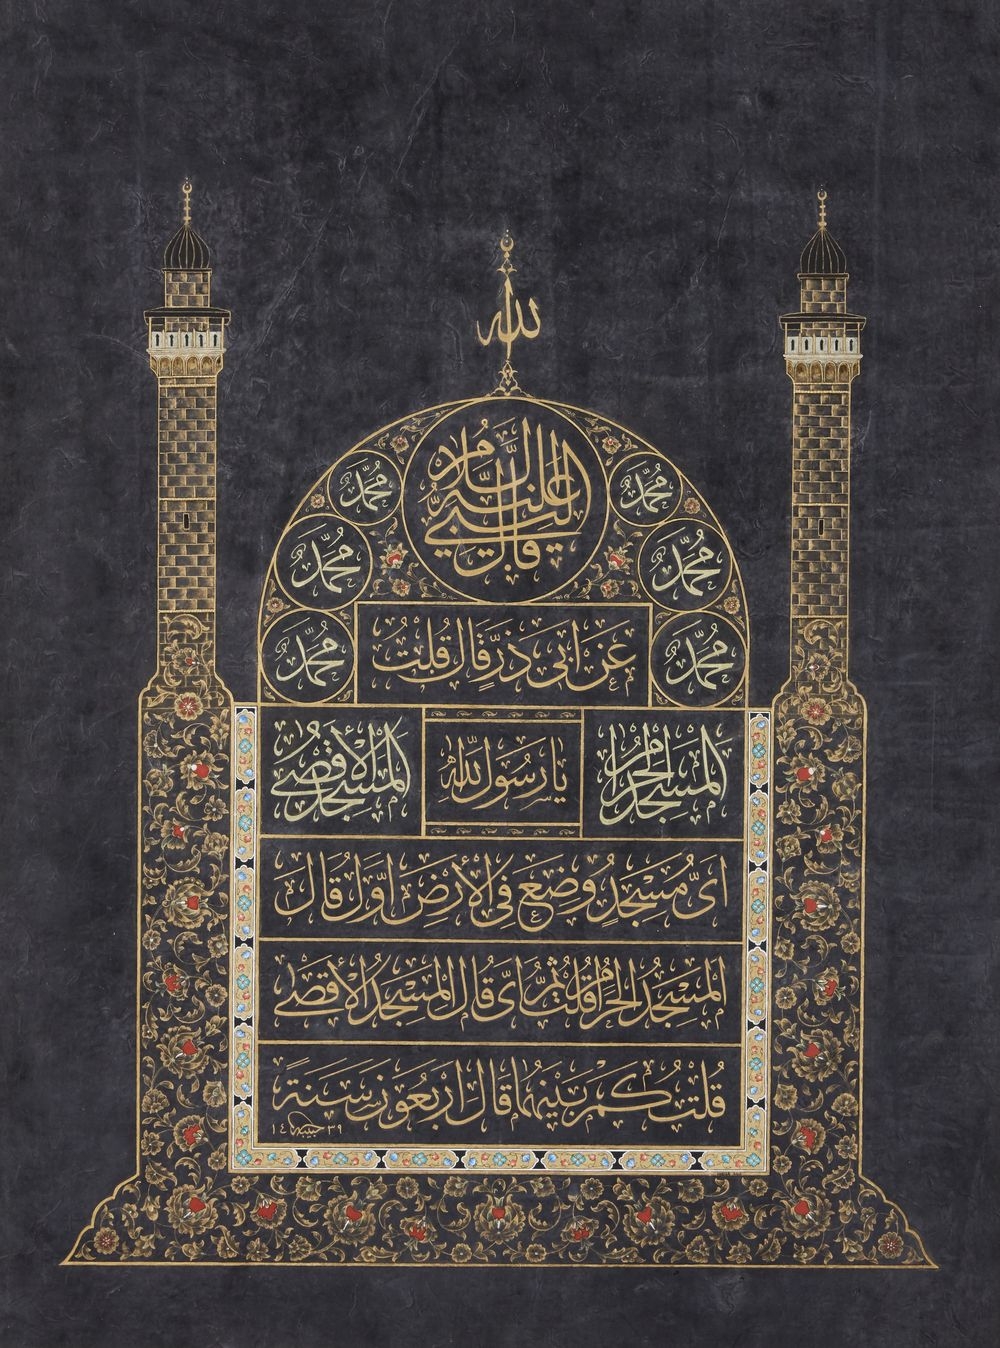 الله
قال النبي عليه السلام
محمد
محمد
محمد
محمد
محمد
محمد
عَنْ اَبِي ذَرٍّ قَالَ قُلْتُ
المسجد الحرام
يَا رَسُولَ اللّٰه
المسجد الأقصى
اَيُّ مَسْجِدٍ وُضِعَ فِي الْأَرْضِ اَوَّلَ قَالَ
الْمَسْجِدُ الْحَرَامُ قُلْتُ ثُمَّ اَيّ قَالَ الْمَسْجِدُ الْأَقْصٰى
قُلْتُ كَمْ بَيْنَهُمَا قَالَ اَرْبَعُونَ سَنَةً
١٤٣٩